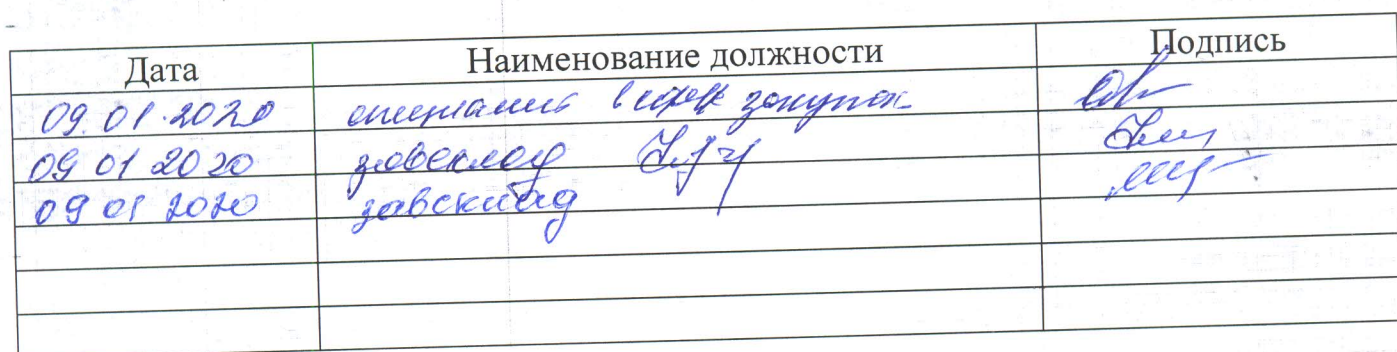 Дата Наименование должности Подпись
09.01.2020 специалист в сфере закупок
09 01 2020 завсклад
09 01 2020 завсклад